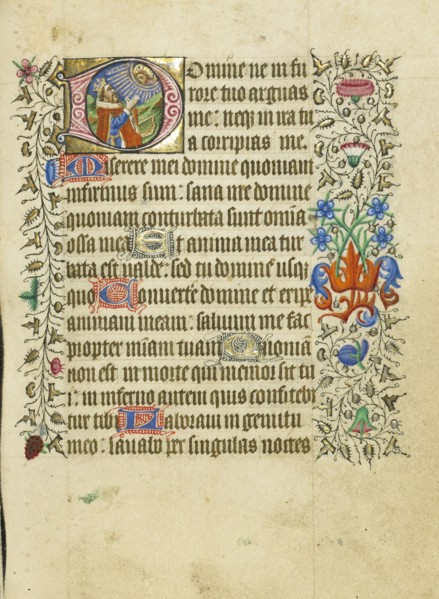 Domine ne in fu
rore tuo arguas
me: neqz in ira tu
a corripias me.
Miserere mei domine quoniam
infirmus sum: sana me domine
quoniam conturbata sunt omnia
ossa mea Et anima mea tur
bata est valde: sed tu domine usqz
quo Convertere domine et eripe
animam meam: salvum me fac
propter miam tuam Quoniam
non est in morte qui memor sit tu
i: in inferno autem quis confitebi
tur tibi Laboravi in gemitu
meo: lavabo per singulas noctes